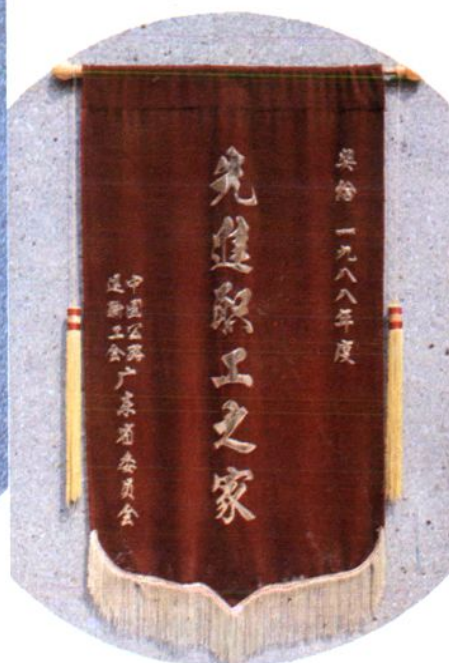 奖给 一九八八年度
先进职工之家
中国公路
运输工会
广东省委员会